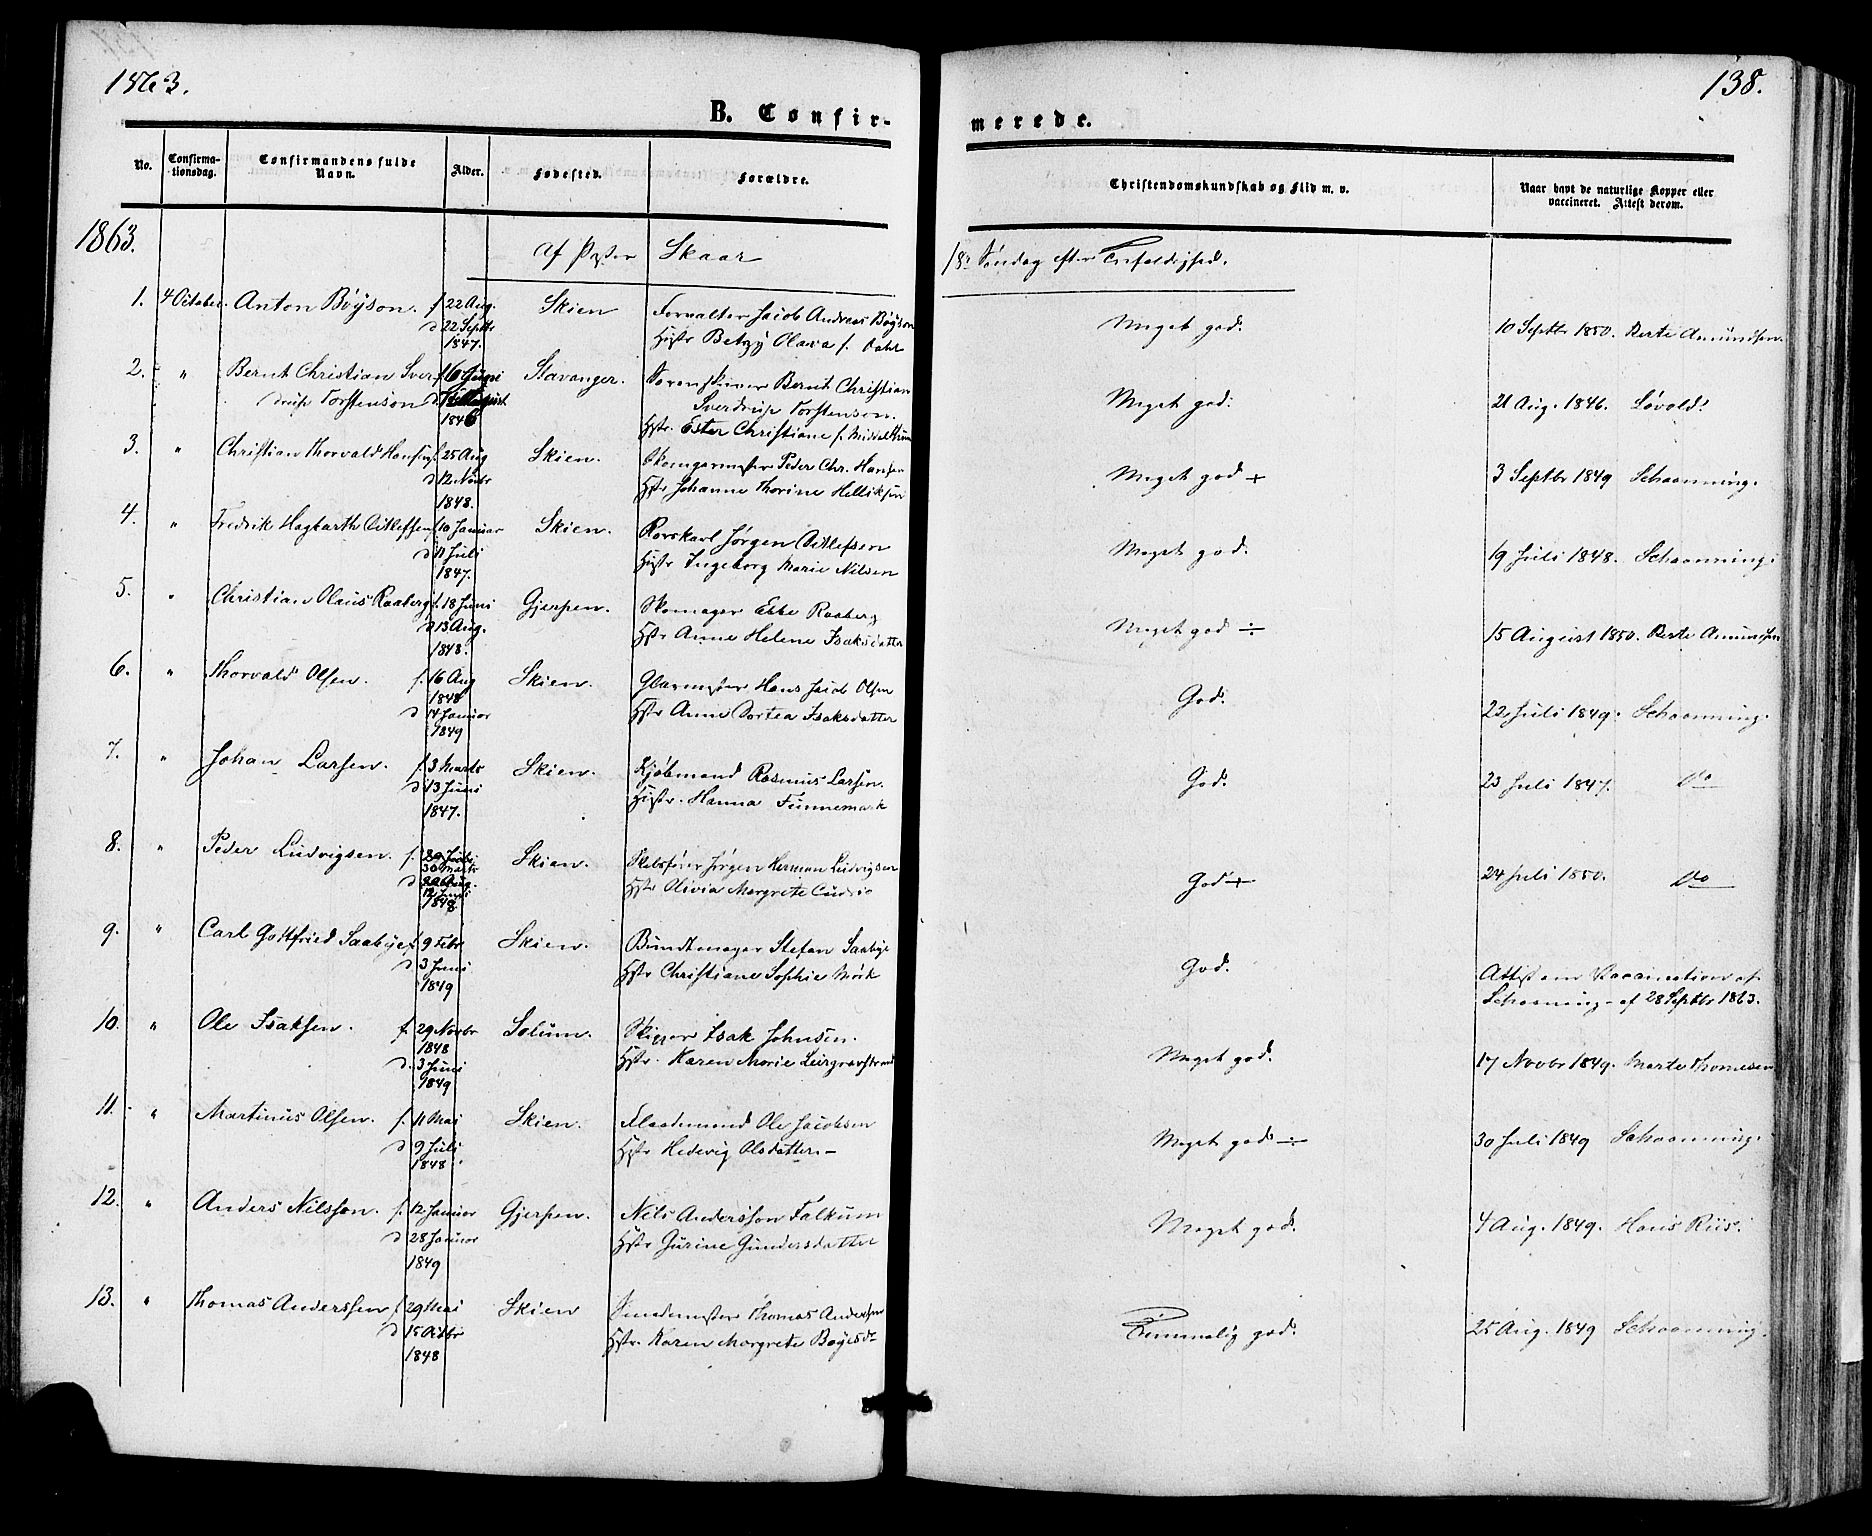 1863.
138.
B. Confir-
merede.
No.
Confirma-
tionsdag.
Confirmandens fulde
Navn.
Alder.
Fødested.
Forældre.
Christendomskundskab og Flid m. v.
Naar havt de naturlige Kopper eller
vaccineret. Attest derom.
1863.
af Pastor Skaar
18. Søndag efter Trefoldighed.
1. 4 October. Anton Bøyson. f 22 Aug. Skien Forvalter Jacob Andreas Bøyson
d 22 Septbr
1847. Hstr Betzy Olava f. Dahl
Meget god. 10 Septbr 1850. Berte Amundsen.
2. " Bernt Christian Sver- f 16 Juni Stavanger. Bernt Christian
drup Torstenson d. August Sverdrup Torstenson.
1846 Hstr. Ester Christiane f.
Meget god. 21 Aug. 1846. Løvold.
3. " Christian Thorvald Hansen f. 25 Aug Skien. Skomagermester Peder Chr. Hansen
d 12 Novbr Hstr Johanne Thorine Helliksen
1848.
Meget god + 3 Septbr 1849 Schaanning.
4. " Fredrik Hagbarth Ditlefsen f 10 Januar Skien. Jørgen Ditlefsen
d 11 Juli Hstr Ingeborg Marie Nilsen
1847.
Meget god. 19 Juli 1848. Schaanning.
5. " Christian Olaus Raaberg f. 18 Juni Gjerpen. Skomager Ebbe Raaberg
d 13 Aug. Hstr Anne Helene Isaksdatter
1848.
Meget god ÷ 15 August 1850. Berte Amundsen
6. " Thorvald Olsen. f. 16 Aug Skien. Glarmester Hans Jacob Olsen
1848
d 14 Januar Hstr Anne Dortea Isaksdatter
1849
God. 22 Juli 1849. Schaanning.
7. " Johan Larsen. f. 3 Marts Skien. Kjøbmand Rasmus Larsen.
d 13 Juni Hstr. Hanna Finnemark
1847.
God. 23 Juli 1847. Do
8. " Peder Ludvigsen. f. 30 Marts Skien. Skibsfører Jørgen Herman Ludvigsen
d 12 Juni Hstr Olivia Margrete
1848
God + 24 Juli 1850. Do
9. " Carl Gottfried Saabye f. 9 Febr Skien. Bundtmager Stefan Saabye
d 3 Juni Hstr Christiane Sophie Mørk
1849
God. Attest om Vaccination af
Schaaning af 28 Septbr 1863.
10. " Ole Isaksen. f. 29 Novbr Solum. Skipper Isak Johnsen.
1848
d. 3 Juni Hstr. Karen Marie Leirgravstrand
1849
Meget god. 17 Novbr 1849. Marte Thomesen
11. " Martinus Olsen. f. 11 Mai Skien. Flaademand Ole Jacobsen
d 9 Juli Hstr Hedevig Olsdatter. -
1848.
Meget god ÷ 30 Juli 1849 Schaanning.
12. " Anders Nilsson. f. 12 Januar Gjerpen. Nils Andersson Falkum
d 28 Januar Hstr Gurine Gundersdatter
1849
Meget god. 4 Aug. 1849. Hans Riis.
13. " Thomas Anderssen f 29 Mai Skien Smedemester Thomas Anderssen
d 15 Octbr Hstr. Karen Margrete Boyesdr
1848
Temmelig god. 25 Aug. 1849 Schaanning.